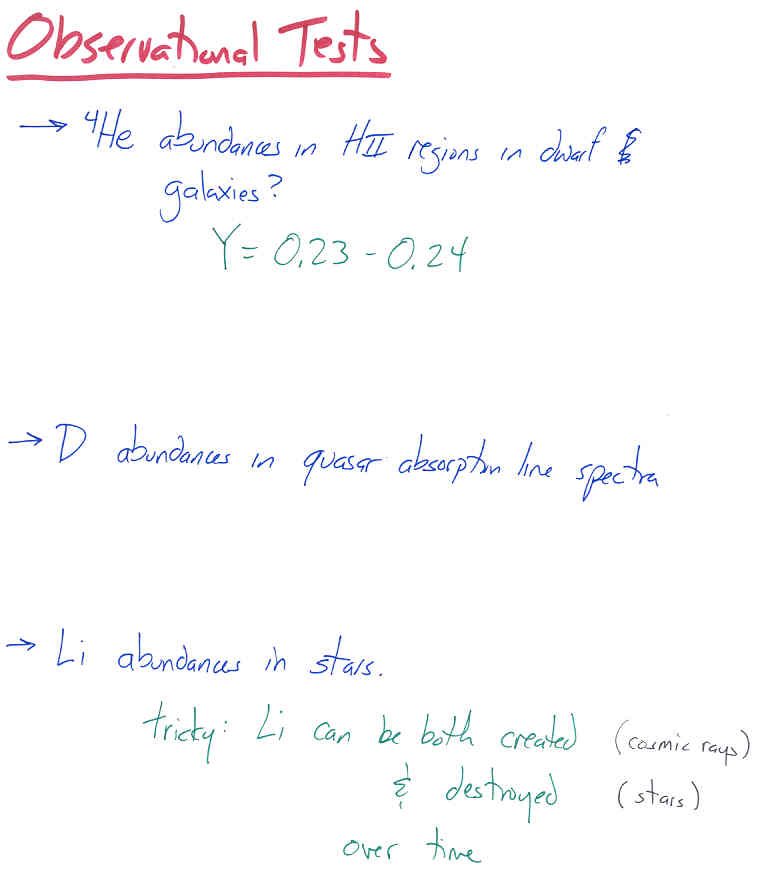 Observational Tests
→ ⁴He abundances in HII regions in dwarf
galaxies?
Y = 0.23 - 0.24
→ D abundances in quasar absorption line spectra
→ Li abundances in stars.
tricky: Li can be both created (cosmic rays)
& destroyed (stars)
over time